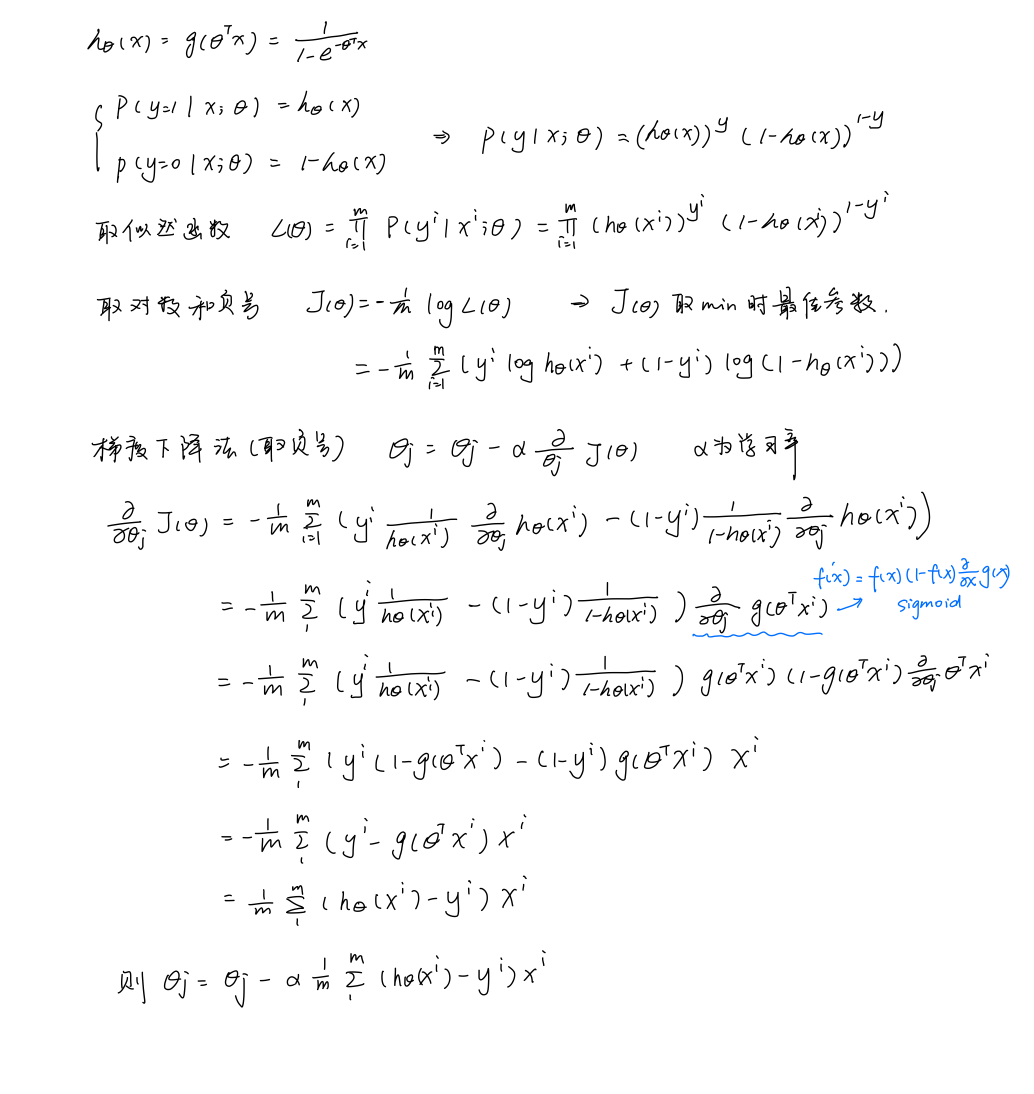 hθ(x) = g(θᵀx) = 1/(1-e^(-θᵀx))
{ P(y=1 | x; θ) = hθ(x)
p(y=0 | x; θ) = 1-hθ(x) ⇒ P(y | x; θ) = (hθ(x))^y (1-hθ(x))^(1-y)
取似然函数 L(θ) = ∏_{i=1}^{m} P(y^i | x^i; θ) = ∏_{i=1}^{m} (hθ(x^i))^(y^i) (1-hθ(x^i))^(1-y^i)
取对数和负号 J(θ) = -1/m log L(θ) → J(θ) 取 min 时最佳参数.
= -1/m ∑_{i=1}^{m} (y^i log hθ(x^i) + (1-y^i) log(1-hθ(x^i)))
梯度下降法(取负号) θj = θj - α ∂/θj J(θ) α为学习率
∂/∂θj J(θ) = -1/m ∑_{i=1}^{m} (y^i 1/hθ(x^i) ∂/∂θj hθ(x^i) - (1-y^i) 1/(1-hθ(x^i)) ∂/∂θj hθ(x^i))
= -1/m ∑_{i}^{m} (y^i 1/hθ(x^i) - (1-y^i) 1/(1-hθ(x^i))) ∂/∂θj g(θᵀx^i) → f'(x) = f(x)(1-f(x) ∂/∂x g(x)
sigmoid
= -1/m ∑_{i}^{m} (y^i 1/hθ(x^i) - (1-y^i) 1/(1-hθ(x^i))) g(θᵀx^i) (1-g(θᵀx^i) ∂/∂θj θᵀx^i
= -1/m ∑_{i}^{m} (y^i (1-g(θᵀx^i) - (1-y^i) g(θᵀx^i) x^i
= -1/m ∑_{i}^{m} (y^i - g(θᵀx^i) x^i
= 1/m ∑_{i}^{m} (hθ(x^i) - y^i) x^i
则 θj = θj - α 1/m ∑_{i}^{m} (hθ(x^i) - y^i) x^i